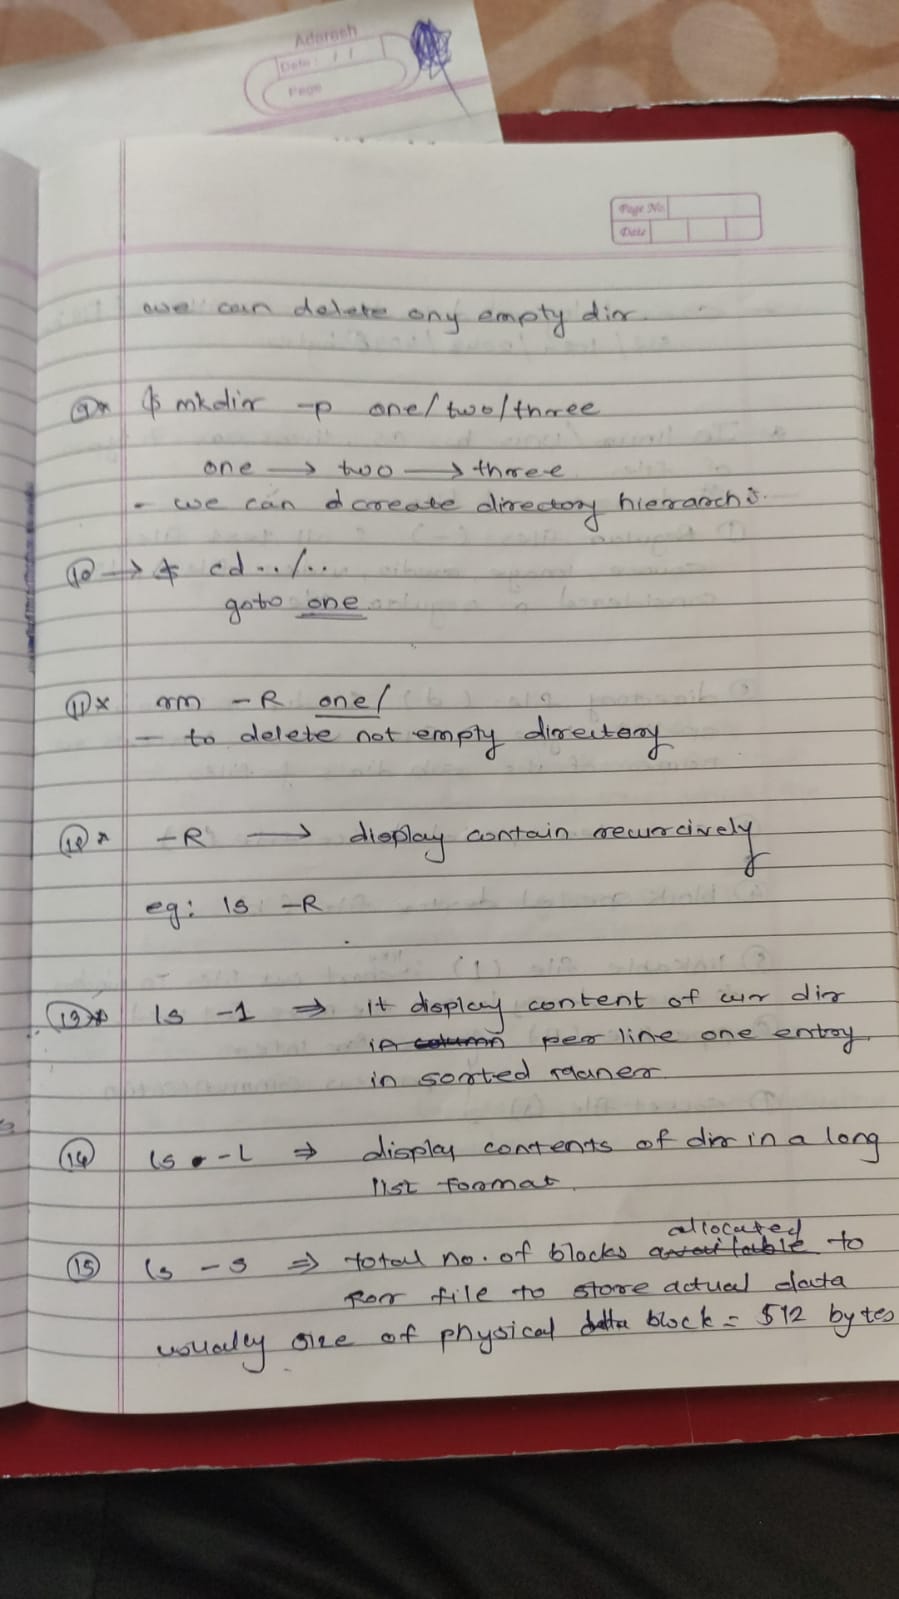 Adarsh
Date: / /
Page
Page No.
Date
we can delete any empty dir.
9* $ mkdir -p one/two/three
one → two → three
- we can create directory hierarchi.
10 → $ cd../..
goto one
11* rm -R one/
- to delete not empty directory
12* -R → display contain recurcively
eg: ls -R
13* ls -1 ⇒ it display content of curr dir
in column per line one entry
in sorted maner
14 ls -l ⇒ display contents of dir in a long
list format.
allocated
15 ls -s ⇒ total no. of blocks available to
for file to store actual data
usually size of physical data block = 512 bytes